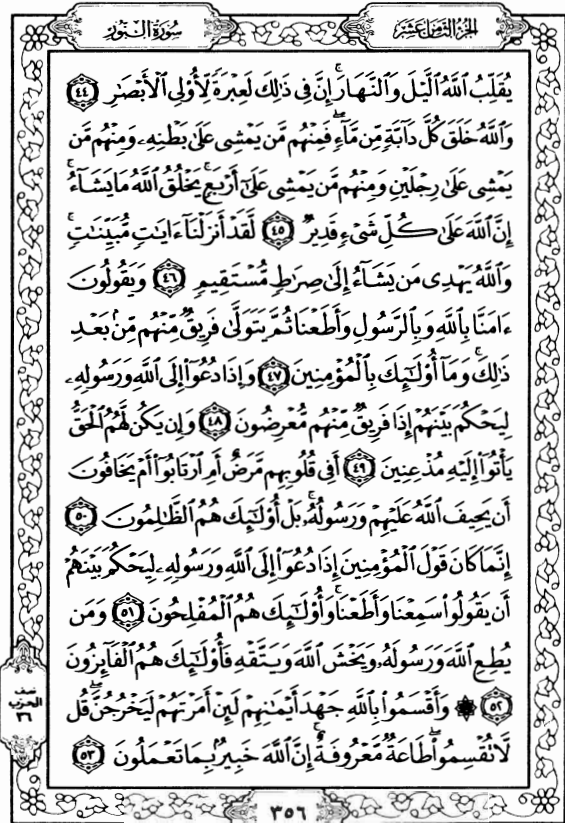 الجزء الثامن عشر
سورة النور
يُقَلِّبُ ٱللَّهُ ٱلَّيْلَ وَٱلنَّهَارَ ۚ إِنَّ فِى ذَٰلِكَ لَعِبْرَةً لِّأُو۟لِى ٱلْأَبْصَٰرِ ٤٤
وَٱللَّهُ خَلَقَ كُلَّ دَآبَّةٍ مِّن مَّآءٍ ۖ فَمِنْهُم مَّن يَمْشِى عَلَىٰ بَطْنِهِۦ وَمِنْهُم مَّن
يَمْشِى عَلَىٰ رِجْلَيْنِ وَمِنْهُم مَّن يَمْشِى عَلَىٰٓ أَرْبَعٍ ۚ يَخْلُقُ ٱللَّهُ مَا يَشَآءُ ۚ
إِنَّ ٱللَّهَ عَلَىٰ كُلِّ شَىْءٍ قَدِيرٌ ٤٥ لَّقَدْ أَنزَلْنَآ ءَايَٰتٍ مُّبَيِّنَٰتٍ ۚ
وَٱللَّهُ يَهْدِى مَن يَشَآءُ إِلَىٰ صِرَٰطٍ مُّسْتَقِيمٍ ٤٦ وَيَقُولُونَ
ءَامَنَّا بِٱللَّهِ وَبِٱلرَّسُولِ وَأَطَعْنَا ثُمَّ يَتَوَلَّىٰ فَرِيقٌ مِّنْهُم مِّنۢ بَعْدِ
ذَٰلِكَ ۚ وَمَآ أُو۟لَٰٓئِكَ بِٱلْمُؤْمِنِينَ ٤٧ وَإِذَا دُعُوٓا۟ إِلَى ٱللَّهِ وَرَسُولِهِۦ
لِيَحْكُمَ بَيْنَهُمْ إِذَا فَرِيقٌ مِّنْهُم مُّعْرِضُونَ ٤٨ وَإِن يَكُن لَّهُمُ ٱلْحَقُّ
يَأْتُوٓا۟ إِلَيْهِ مُذْعِنِينَ ٤٩ أَفِى قُلُوبِهِم مَّرَضٌ أَمِ ٱرْتَابُوٓا۟ أَمْ يَخَافُونَ
أَن يَحِيفَ ٱللَّهُ عَلَيْهِمْ وَرَسُولُهُۥ ۚ بَلْ أُو۟لَٰٓئِكَ هُمُ ٱلظَّٰلِمُونَ ٥٠
إِنَّمَا كَانَ قَوْلَ ٱلْمُؤْمِنِينَ إِذَا دُعُوٓا۟ إِلَى ٱللَّهِ وَرَسُولِهِۦ لِيَحْكُمَ بَيْنَهُمْ
أَن يَقُولُوا۟ سَمِعْنَا وَأَطَعْنَا ۚ وَأُو۟لَٰٓئِكَ هُمُ ٱلْمُفْلِحُونَ ٥١ وَمَن
يُطِعِ ٱللَّهَ وَرَسُولَهُۥ وَيَخْشَ ٱللَّهَ وَيَتَّقْهِ فَأُو۟لَٰٓئِكَ هُمُ ٱلْفَآئِزُونَ
٥٢ ۞ وَأَقْسَمُوا۟ بِٱللَّهِ جَهْدَ أَيْمَٰنِهِمْ لَئِنْ أَمَرْتَهُمْ لَيَخْرُجُنَّ ۖ قُل
لَّا تُقْسِمُوا۟ ۖ طَاعَةٌ مَّعْرُوفَةٌ ۚ إِنَّ ٱللَّهَ خَبِيرٌۢ بِمَا تَعْمَلُونَ ٥٣
نصف
الحزب
٣٦
٣٥٦